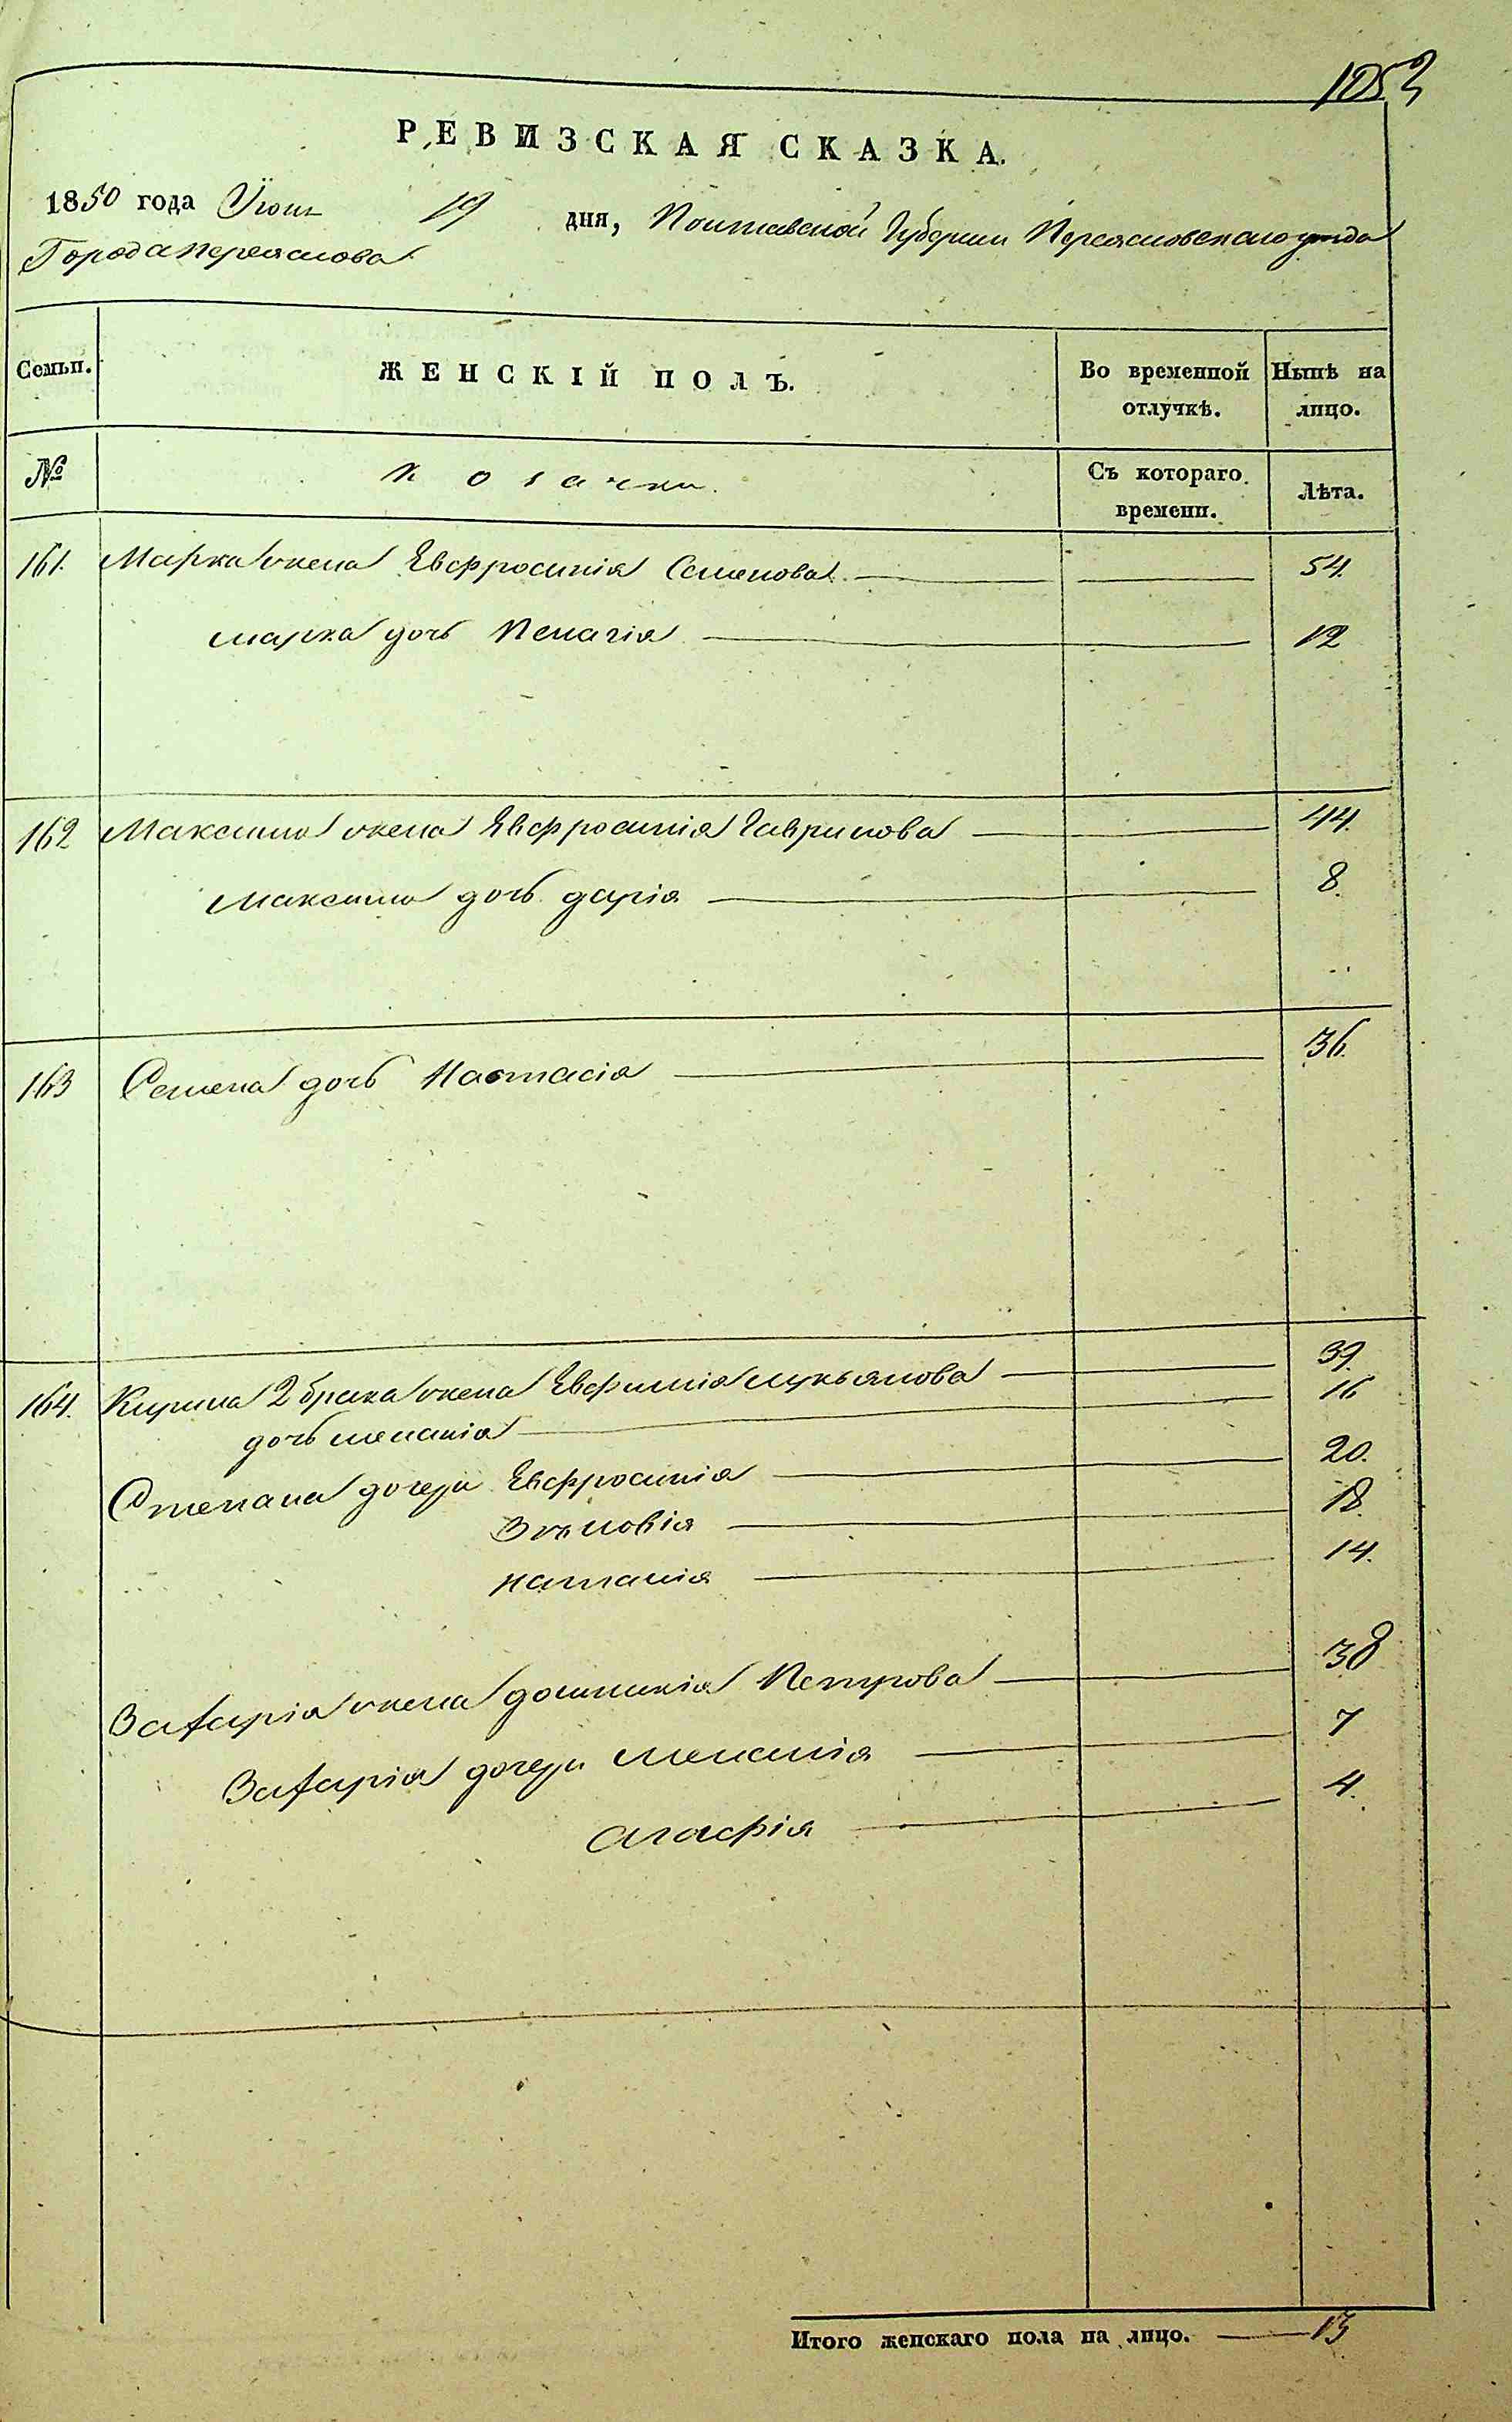 1052
РЕВИЗСКАЯ СКАЗКА.
1850 года Июня 19 дня, Полтавской Губернии Переясловского уезда
Города Переяслова
Семьи. ЖЕНСКІЙ ПОЛЪ. Во временной отлучкѣ. Нынѣ на лицо.
№ Козачки. Съ котораго времени. Лѣта.
161. Марка жена Евфросинія Семенова 54.
Марка дочь Пелагія 12
162 Максима жена Евфросинія Гаврилова 44.
Максима дочь дарія 8.
163 Семена дочь Настасія 36.
164. Кирила 2 брака жена Евфимія лукьянова 39.
дочь меланія 16
Степана дочери Евфросинія 20.
Зѣновія 18.
наталія 14.
Захарія жена домникія Петрова 38
Захарія дочери меланія 7
агафія 4.
Итого женскаго пола на лицо. 13